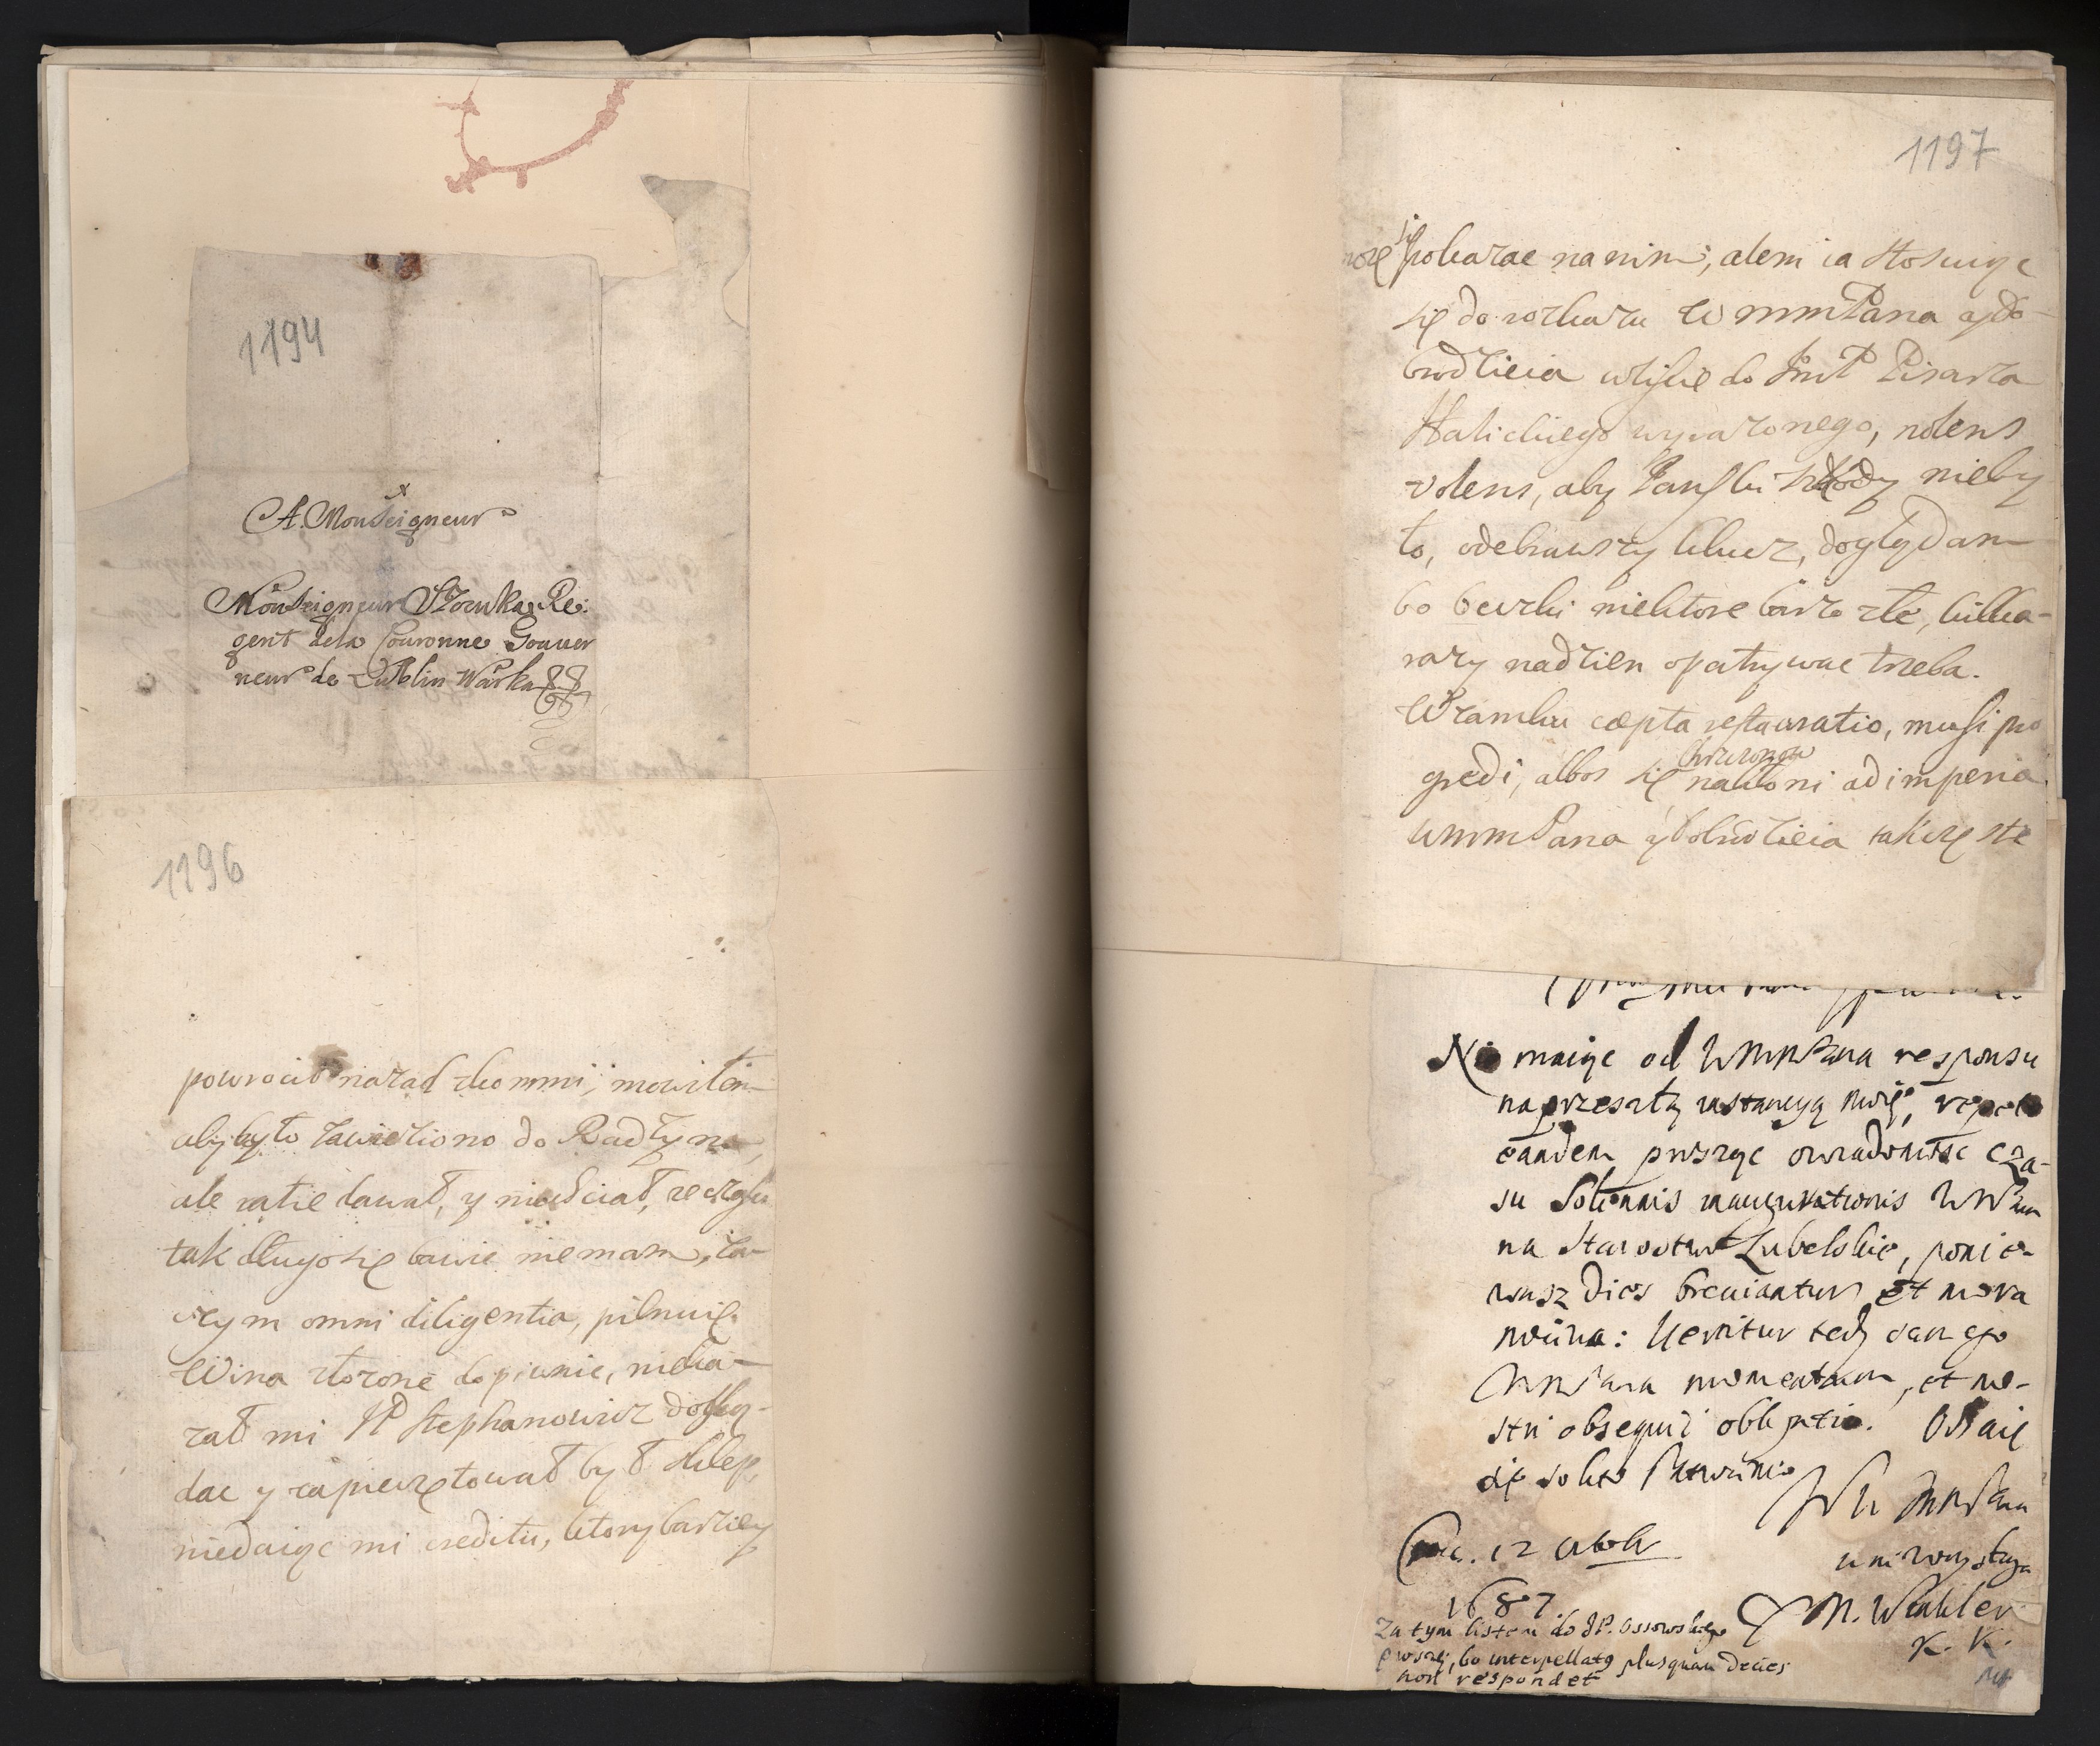 1194
A. Monseigneur
Monseigneur Szczuka Re:
gent dela Couronne Gouver
neur de Lublin Warka
1196
powrocił nazad zkommi, mowiłem
aby było zawieziono do Radzyna,
ale racie dawał, y niechciał, ze czasu
tak długo się bawic niemam, za-
czym omni diligentia, pilnuię.
Wina złozone dopiwnic, nieka-
zał mi JP Stephanowicz dogląn-
dac y zapieczętował był sklep,
niedaiąc mi creditu, ktory barziey
1197
moze się pokazac na nim, alem ia stosuiąc
się do rozkazu WmmPana y Do-
brodzieia wliście do JmP Pisarza
Halickiego wyrazonego, nolens
volens, aby Panski szkody nieby
ło, odebrawszy klucz, doglądam
bo beczki niektore barzo złe, kilka-
razy nadzien opatrywac trzeba.
Wzamku cæpta restauratio, musi pro
gredi, albos się nakłoni ad imperia
WmmPana y Dobrodzieia takze ste
Nie maiąc od WMMPana responsu
naprzeszłą instancyą moię, repeto
eandem, prosząc owiadomosc cza-
su Solennis inaugurationis WMPana
na Starostwo Lubelskie, ponie-
wasz dies breviantur et mora
nociva: Uenitur tedy samego
WMMPana momentum, et no-
stri obsequii obligatio. Ostaię
się solito
WM MMPana
12
1687
uniz. sługa
M. Winkler
K. K.
Za tym listem do JP. Ossowskiego
proszę, bo interpellatg plusquam decies
non respondet